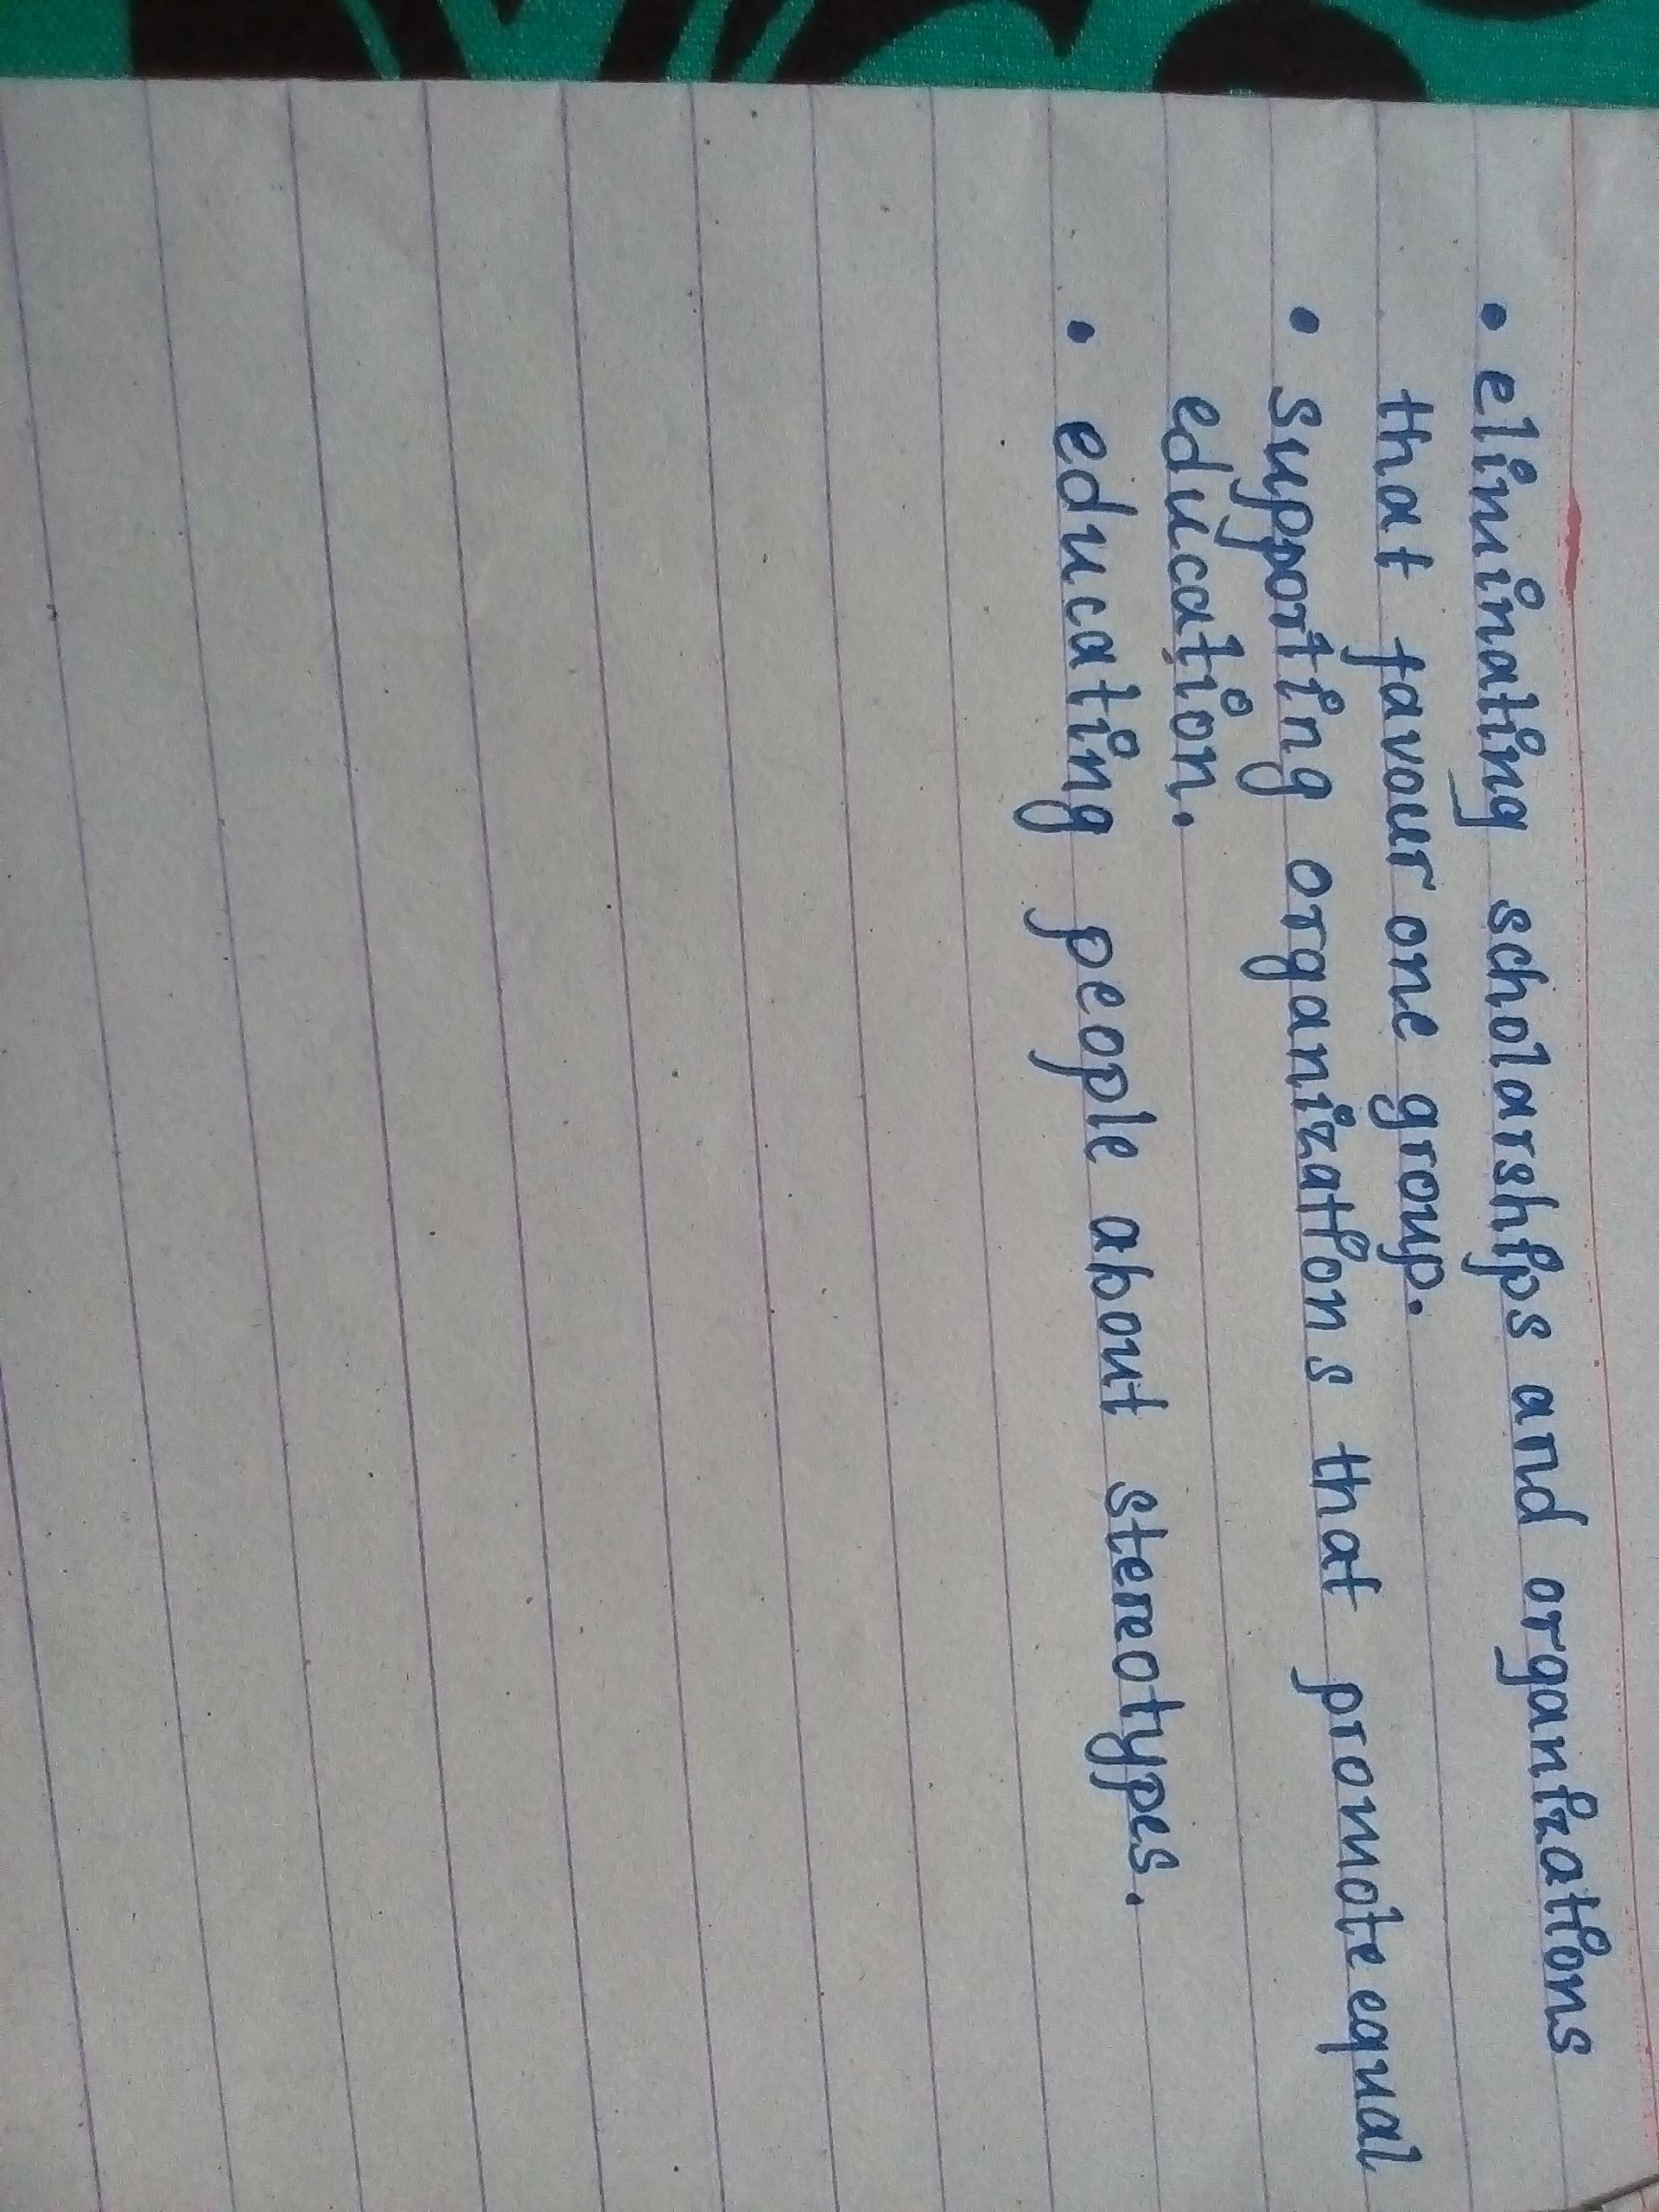 • eliminating scholarships and organizations
that favour one group.
• supporting organizations that promote equal
education.
• educating people about stereotypes.